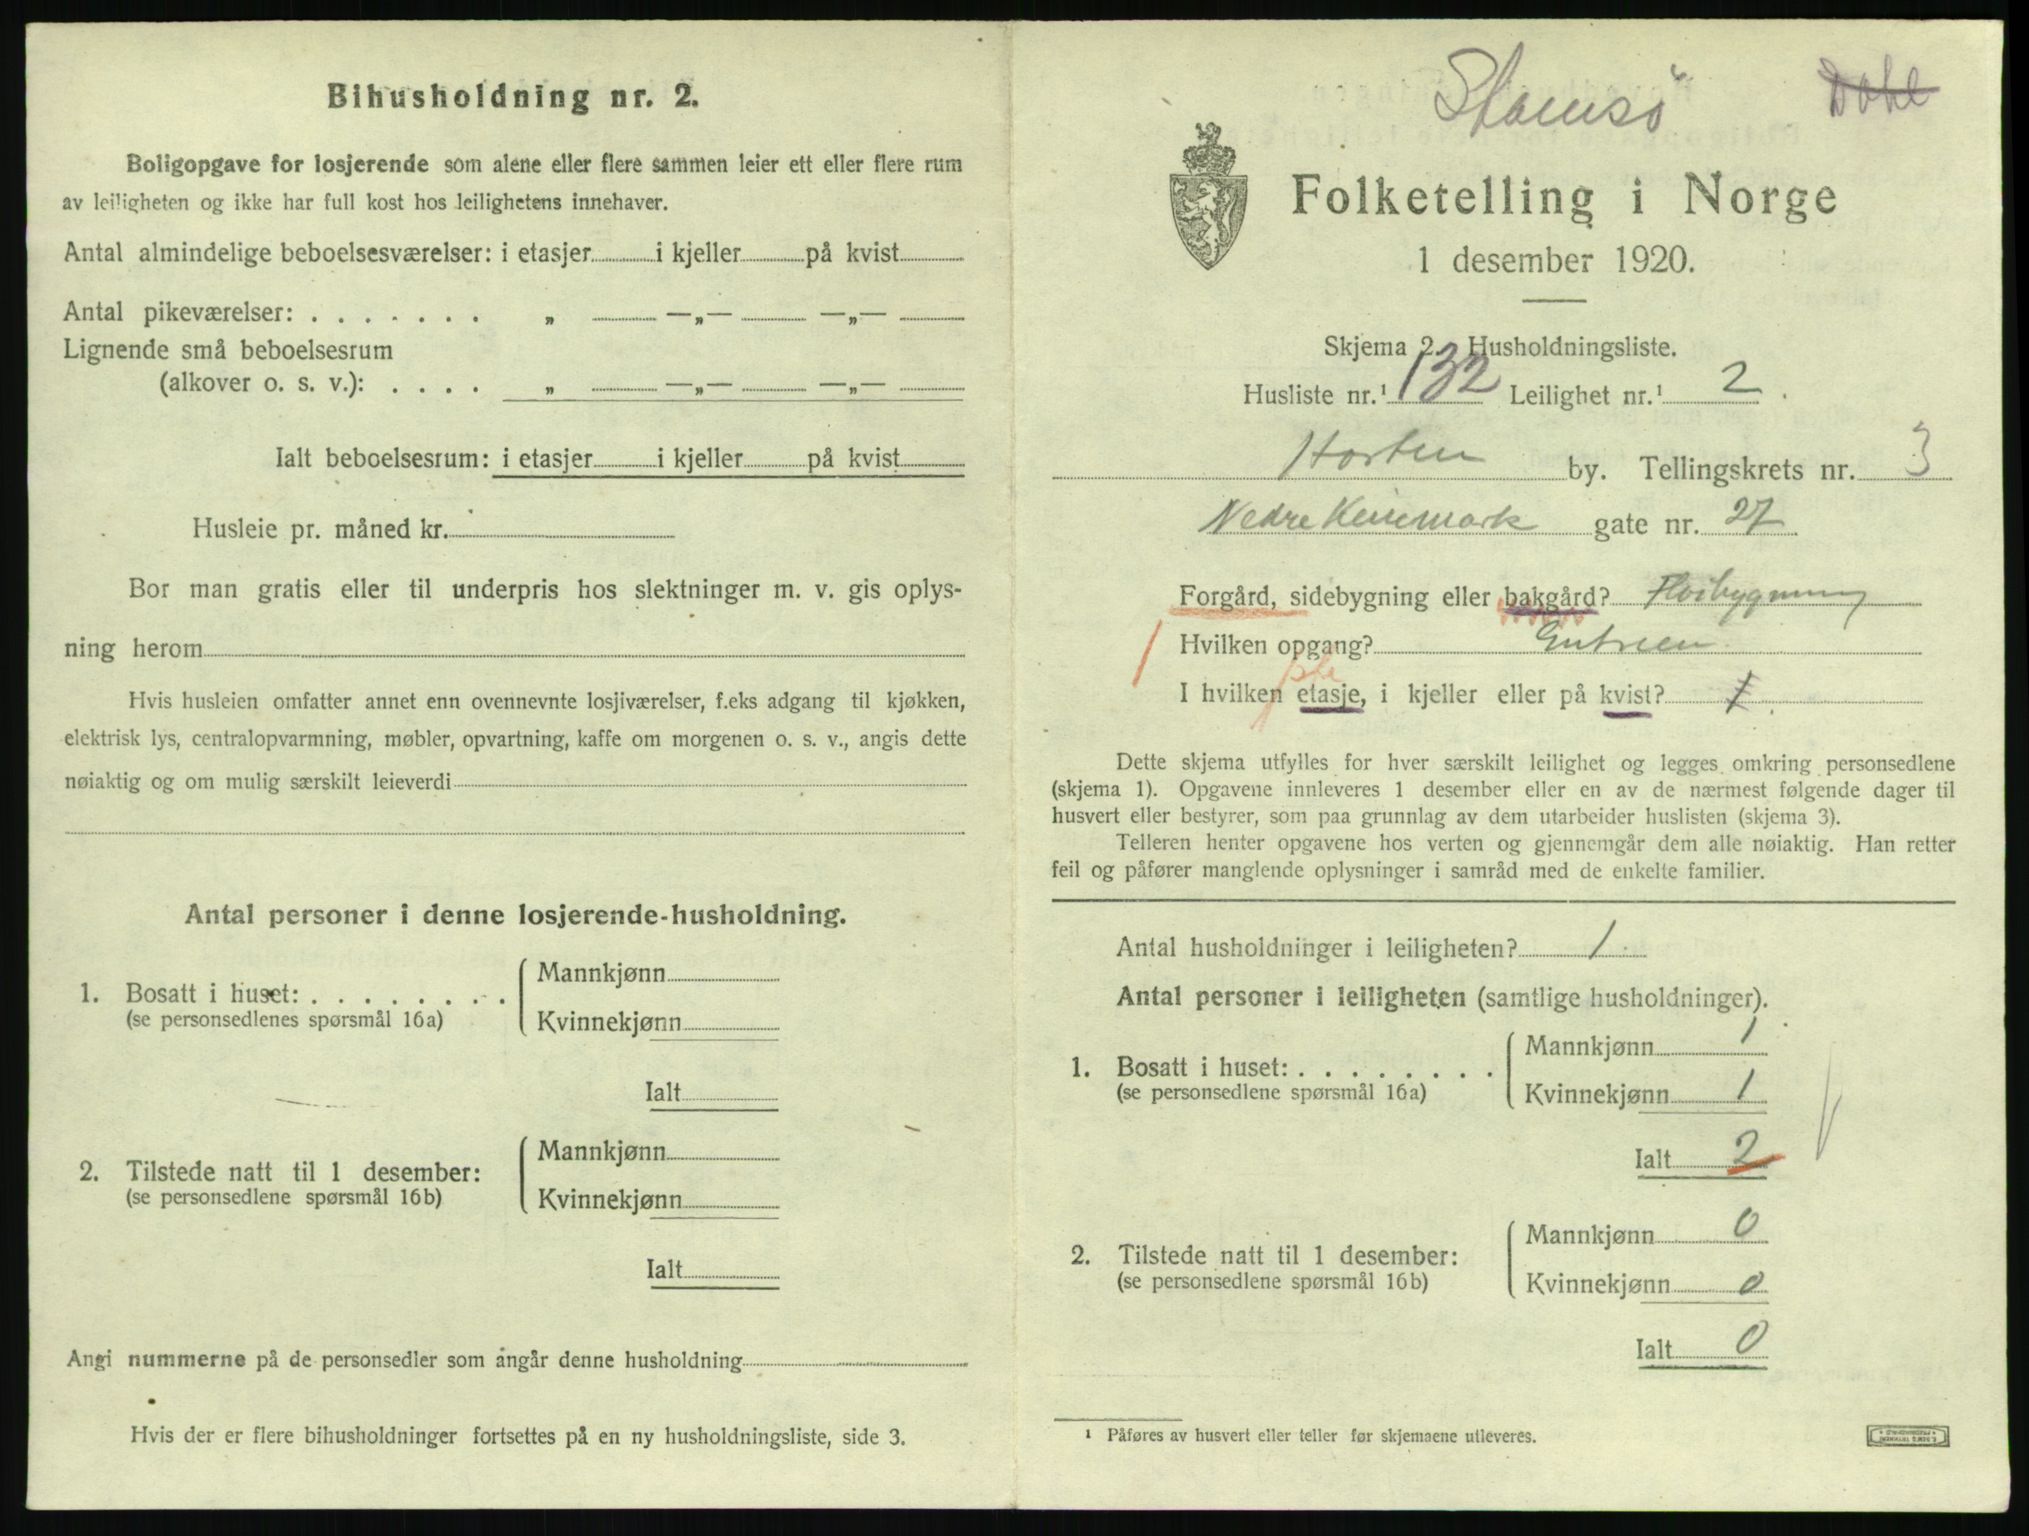 Bihusholdning nr. 2.
Boligopgave for losjerende som alene eller flere sammen leier ett eller flere rum
av leiligheten og ikke har full kost hos leilighetens innehaver.
Antal almindelige beboelsesværelser: i etasjer i kjeller på kvist
Antal pikeværelser: . . . . . . . „ —„— —„—
Lignende små beboelsesrum
(alkover o. s. v.): . . . . „ —„— —„—
Ialt beboelsesrum: i etasjer i kjeller på kvist
Husleie pr. måned kr.
Bor man gratis eller til underpris hos slektninger m. v. gis oplys-
ning herom
Hvis husleien omfatter annet enn ovennevnte losjiværelser, f.eks adgang til kjøkken,
elektrisk lys, centralopvarmning, møbler, opvartning, kaffe om morgenen o. s. v., angis dette
nøiaktig og om mulig særskilt leieverdi
Antal personer i denne losjerende-husholdning.
1. Bosatt i huset: . . . . . . . .
(se personsedlenes spørsmål 16a)
Mannkjønn
Kvinnekjønn
Ialt
2. Tilstede natt til 1 desember:
(se personsedlene spørsmål 16b)
Mannkjønn
Kvinnekjønn
Ialt
Angi nummerne på de personsedler som angår denne husholdning
Hvis der er flere bihusholdninger fortsettes på en ny husholdningsliste, side 3.
Stamsö Dahl
Folketelling i Norge
1 desember 1920.
Skjema 2. Husholdningsliste.
Husliste nr.¹ 132 Leilighet nr.¹ 2
Horten by. Tellingskrets nr. 3
Nedre Keisemark gate nr. 27
Forgård, sidebygning eller bakgård? Fløibygning
Hvilken opgang? Entreen
1
1ste
I hvilken etasje, i kjeller eller på kvist? 1
Dette skjema utfylles for hver særskilt leilighet og legges omkring personsedlene
(skjema 1). Opgavene innleveres 1 desember eller en av de nærmest følgende dager til
husvert eller bestyrer, som paa grunnlag av dem utarbeider huslisten (skjema 3).
Telleren henter opgavene hos verten og gjennemgår dem alle nøiaktig. Han retter
feil og påfører manglende oplysninger i samråd med de enkelte familier.
Antal husholdninger i leiligheten? 1
Antal personer i leiligheten (samtlige husholdninger).
1. Bosatt i huset: . . . . . . . .
(se personsedlene spørsmål 16a)
Mannkjønn 1
Kvinnekjønn 1
Ialt 2
2. Tilstede natt til 1 desember:
(se personsedlene spørsmål 16b)
Mannkjønn 0
Kvinnekjønn 0
Ialt 0
¹ Påføres av husvert eller teller før skjemaene utleveres.